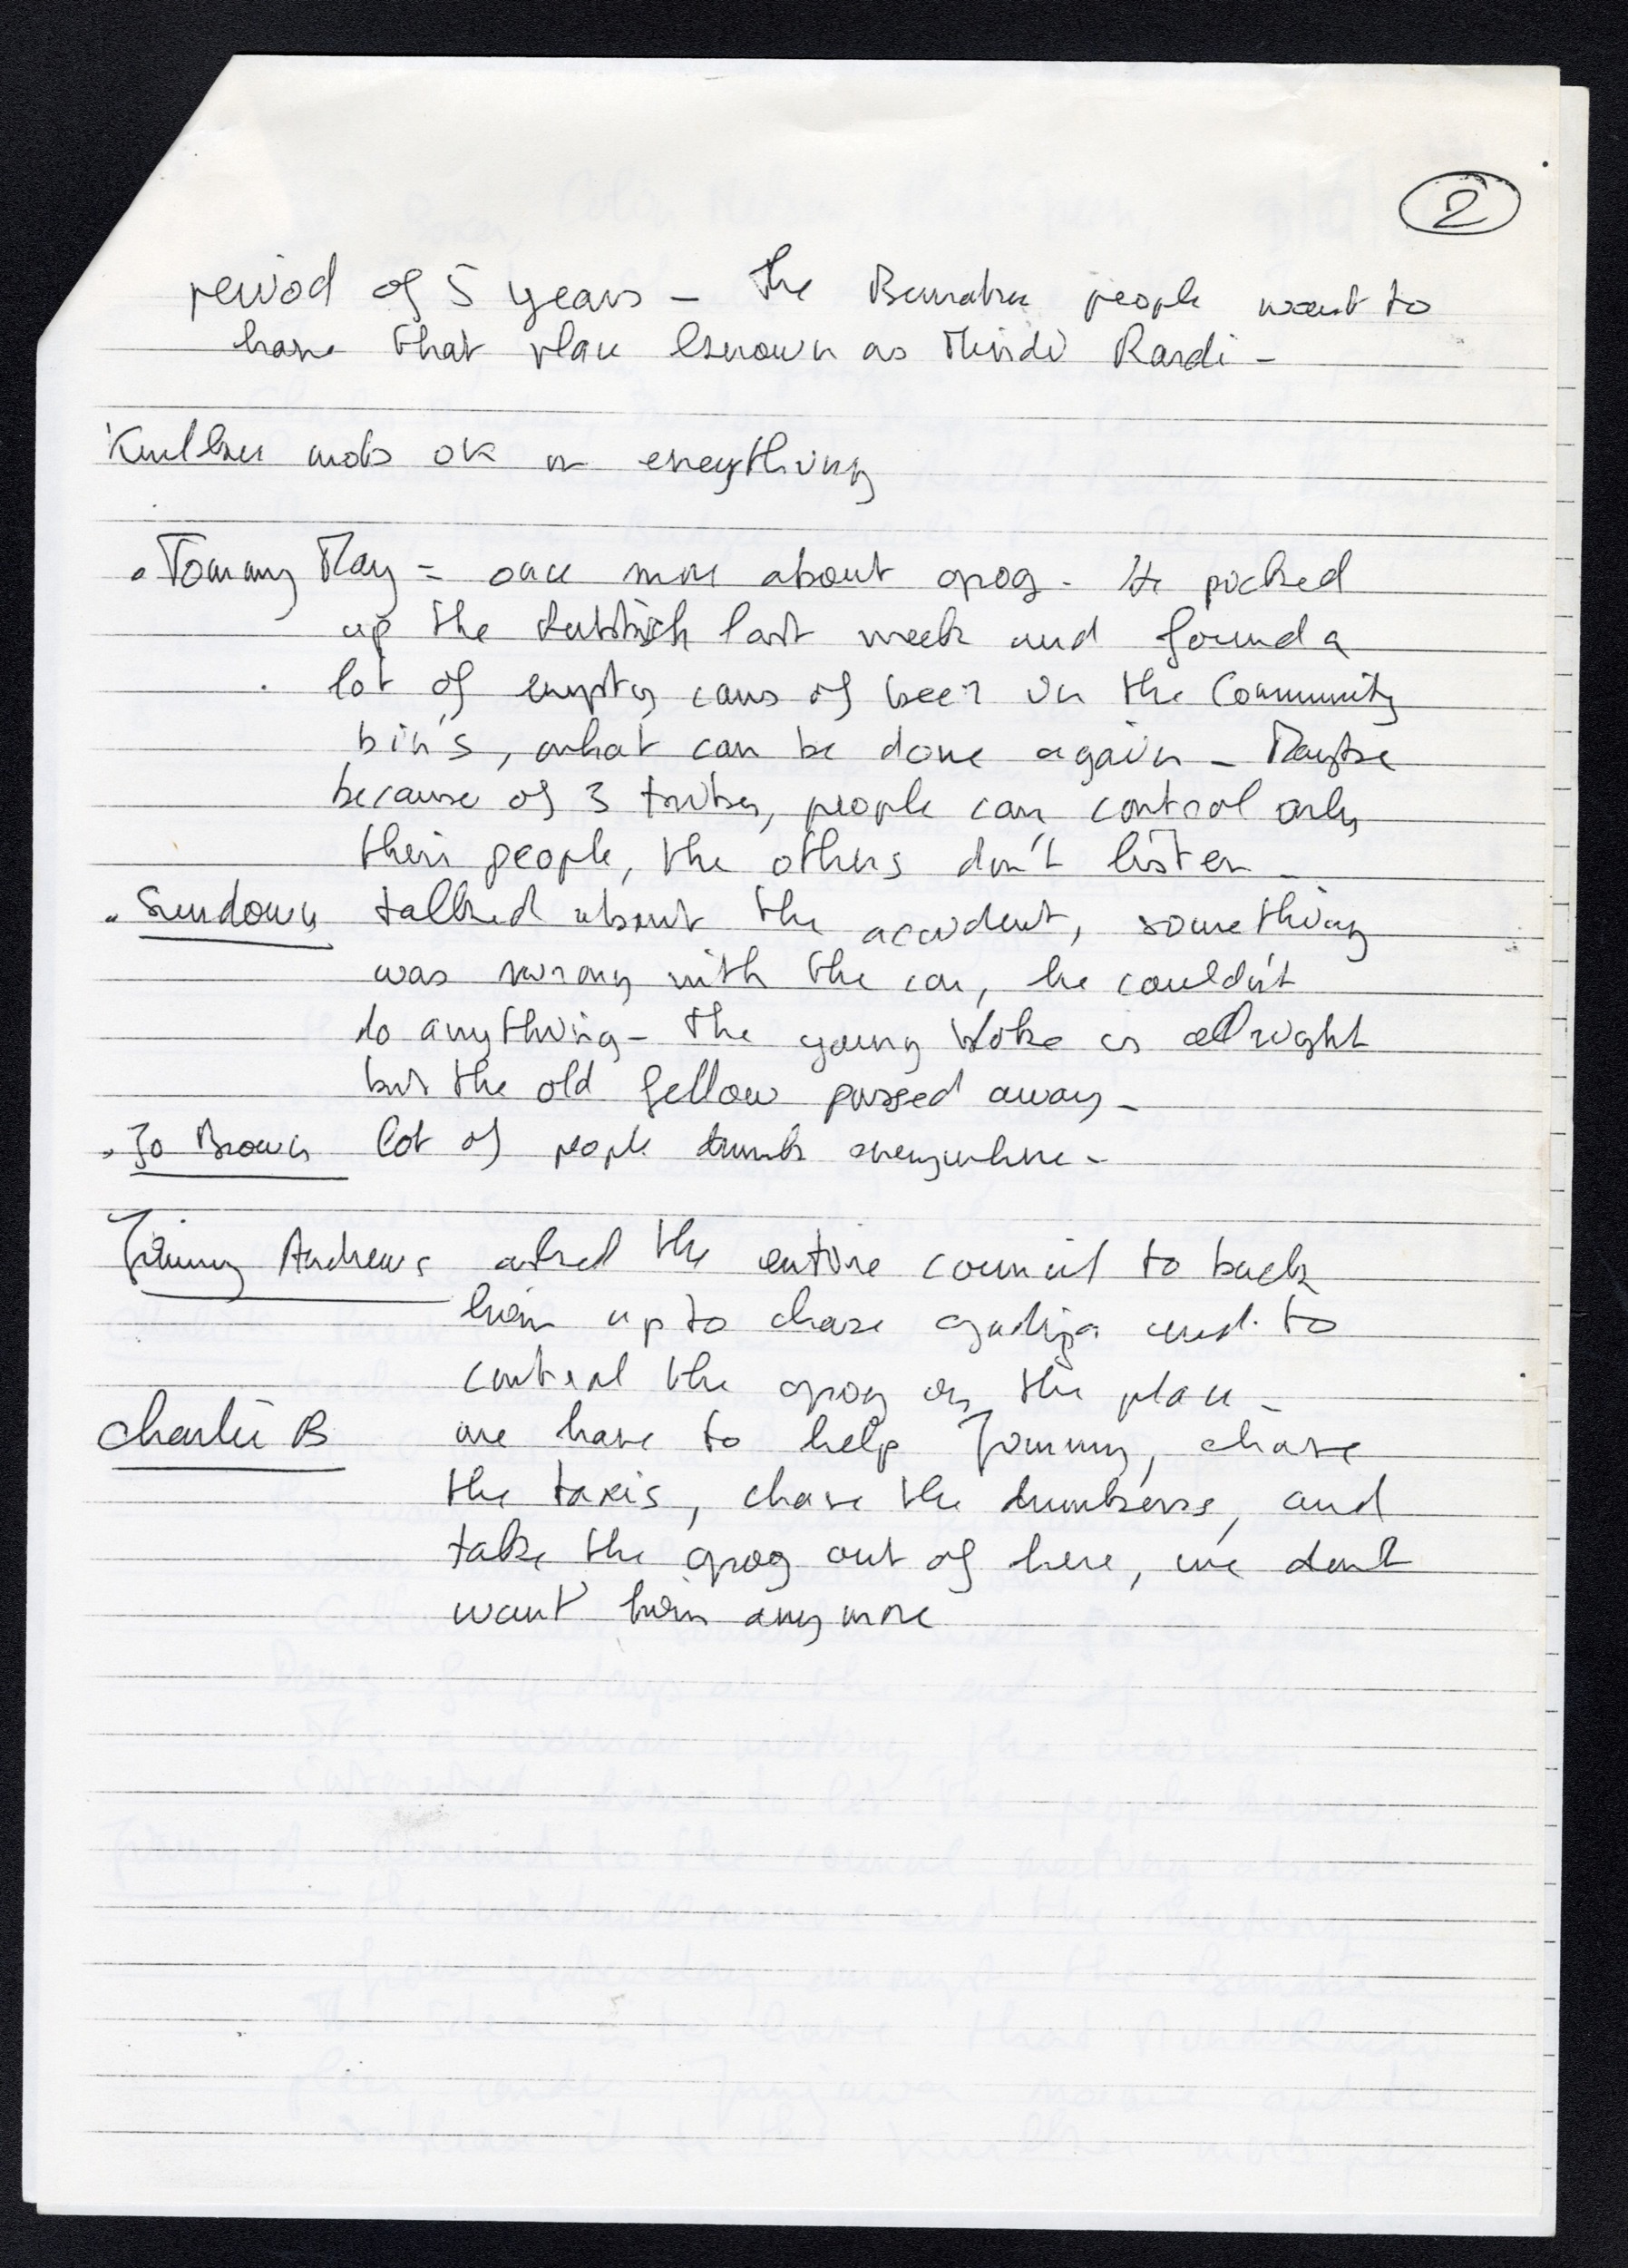 2
period of 5 years - The Bunuba people want to
have that place known as Mindi Rardi -
Kurlku mobs ok on everything
. Tommy May = once more about grog - He picked
up the rubbish last week and found a
lot of empty cans of beer in the Community
bin's, what can be done again - Maybe
because of 3 tribes, people can control only
their people, the others don't listen -
. Sundown talked about the accident, something
was wrong with the car, he couldn't
do anything - The young bloke is allright
but the old fellow passed away -
. Jo Brown lot of people drunk everywhere -
Jimmy Andrews asked the entire council to back
him up to chase gadiya and to
control the grog on the place -
Charlie B we have to help Jimmy, chase
the taxis, chase the drunkers, and
take the grog out of here, we dont
want him anymore